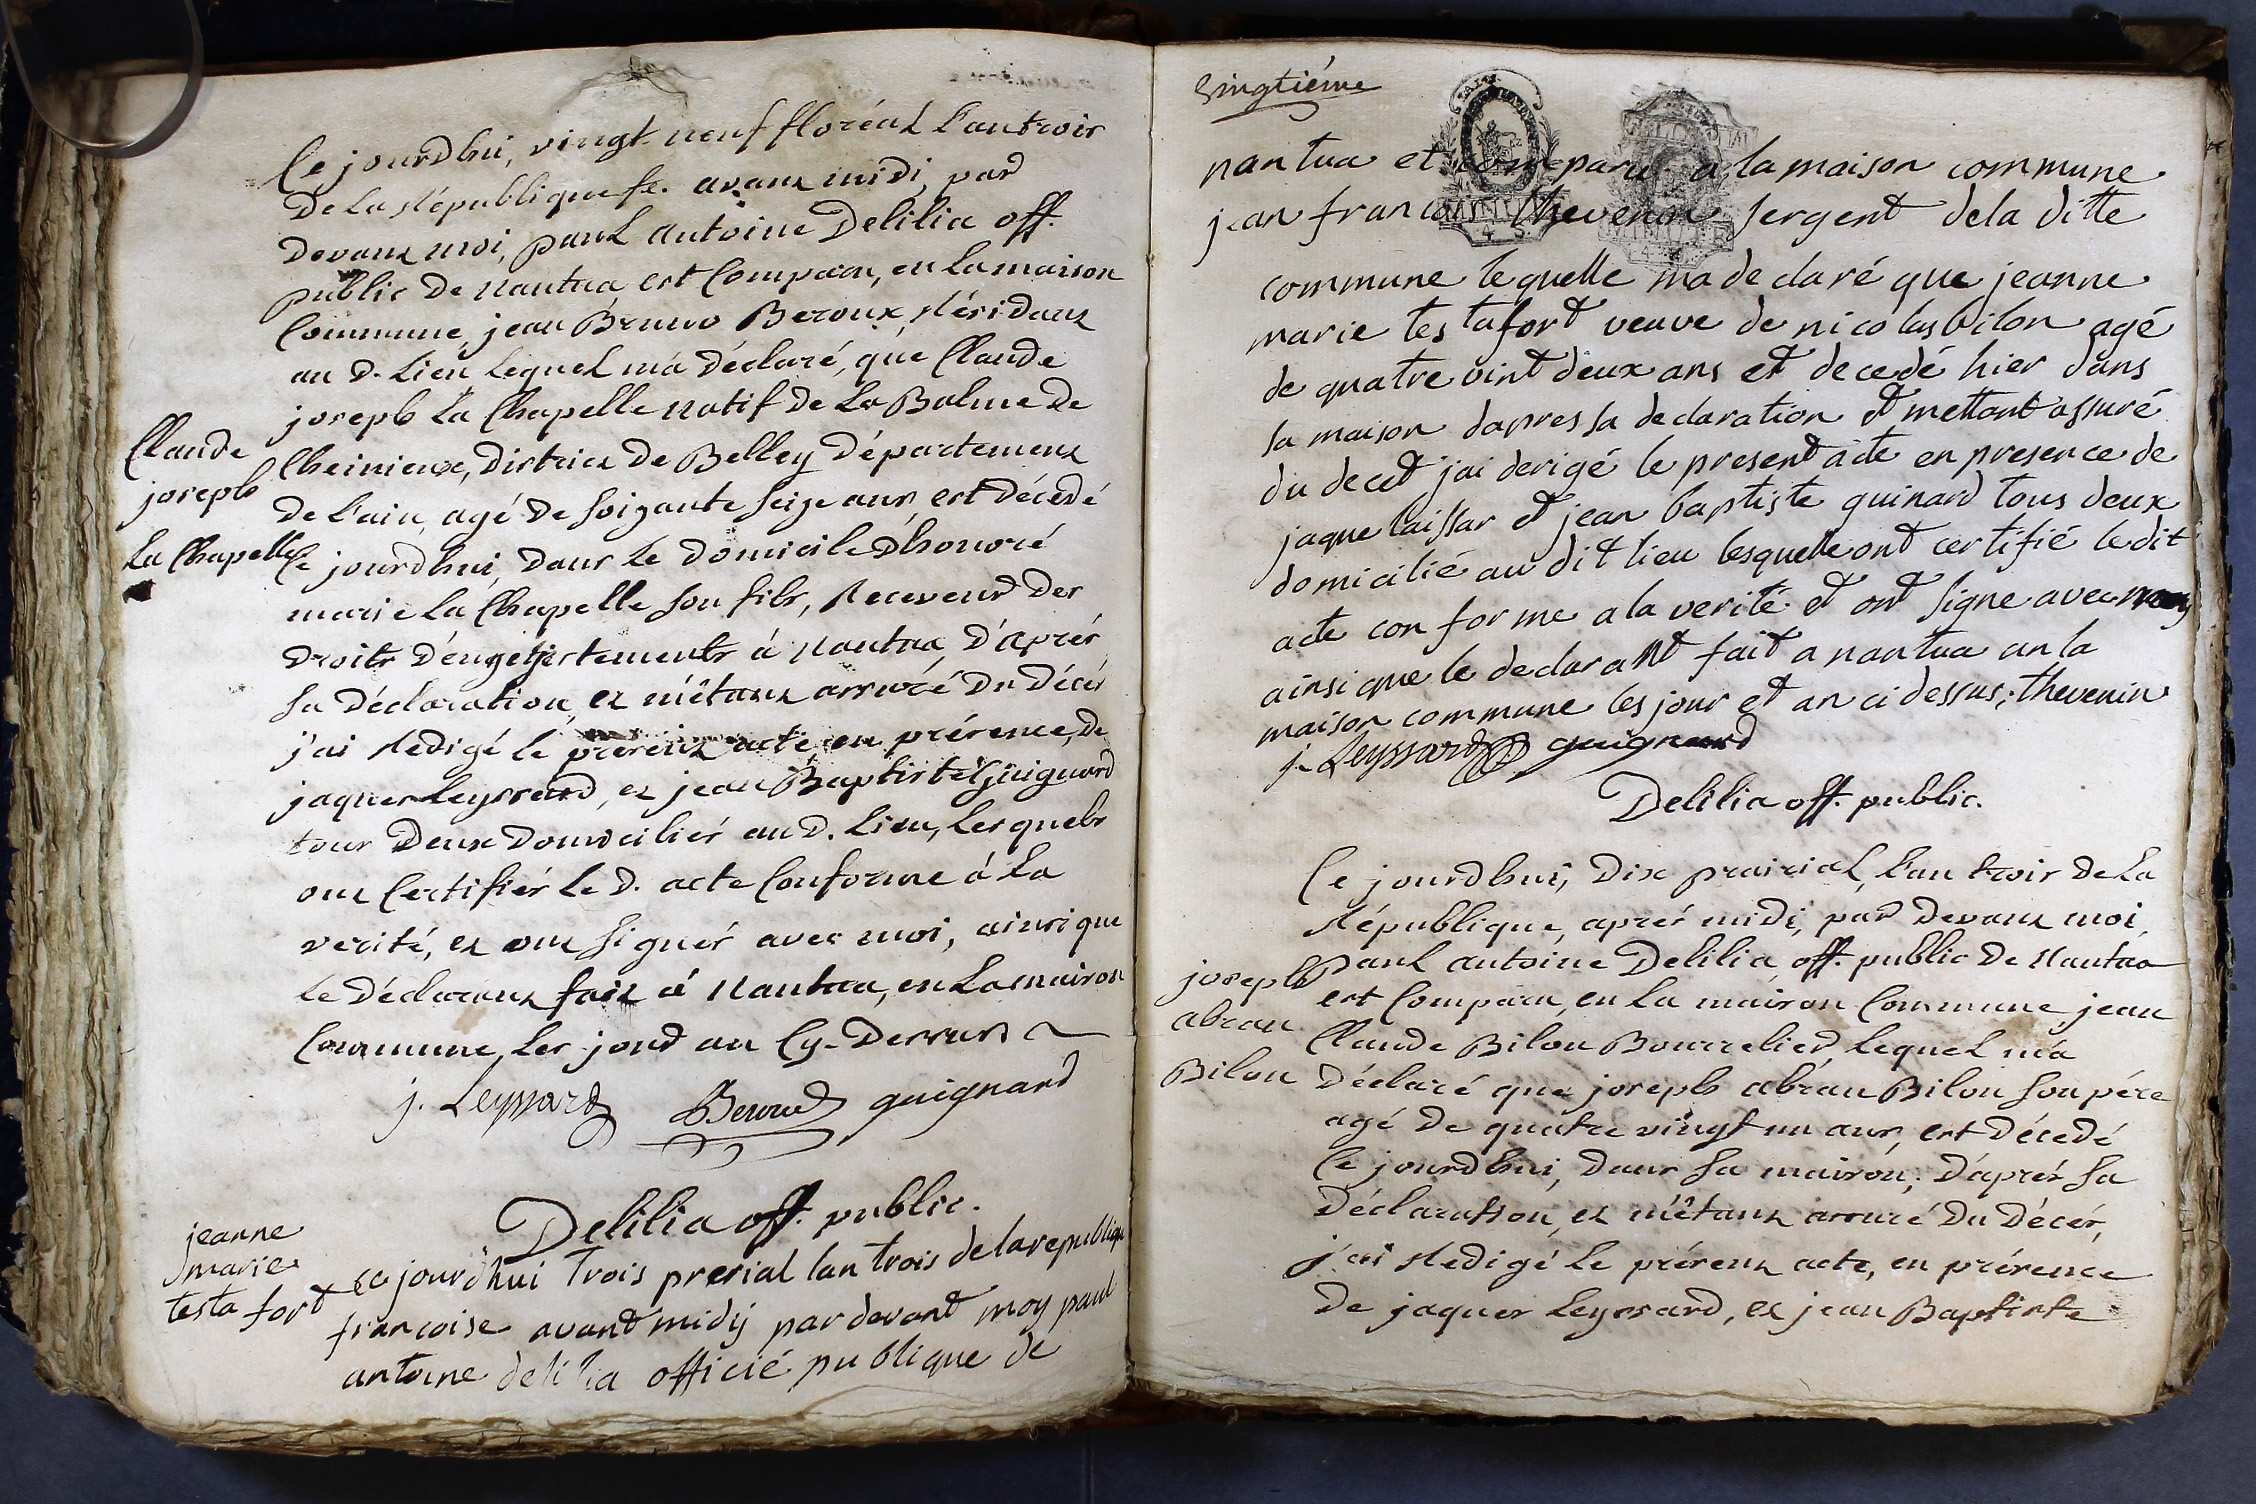 Ce jourdhui, vingt-neuf floréal l'an trois
De La République fe. avant midi, par
Devant moi, paul antoine Delilia off.
public De Nantua est Comparu, en La maison
Commune, jean Bruno Beroux, Résidant
au D. Lieu Lequel m'a Déclaré, que Claude
joseph La Chapelle natif De La Balme De
Claude
joseph
La Chapelle
Cheinieux, District De Belley Département
De L'ain, agé De Soixante Seize ans, est Décédé
Ce jourdhui, Dans Le Domicile D'honoré
marie La Chapelle Son fils, Receveur Des
Droits D'engistrements à Nantua, D'après
Sa Déclaration, et m'étant assuré Du Décès
j'ai Redigé Le présent acte en présence, De
jaques Leyssard, et jean Baptiste Guignard
tous Deux Domiciliés au D. Lieu, Lesquels
ont Certifiés Le D. acte Conforme à La
verité, et ont Signés avec moi, ainsi que
Le Déclarant fait à Nantua, en La maison
Commune, Les jour an Cy-Dessus
j. Leyssard Beroud guignard
Delilia off. public.
jeanne
marie
testa fort
ce jourd'hui trois prerial lan trois de la republique
francoise avant midy par devant moy paul
antoine delilia officié publique de
vingtiéme
nantua et comparu a la maison commune
jean francois thevenin sergent dela ditte
commune lequelle ma declaré que jeanne
marie testafort veuve de nicolas bilon agé
de quatre vint deux ans et decedé hier dans
sa maison dapres sa declaration et mettant assuré
du decet jai derigé le present acte en presence de
jaque laissar et jean baptiste guinard tous deux
domicilié au dit lieu lesquelle ont certifié ledit
acte conforme a la verité et ont signe avec moy
ainsi que le declarant fait a nantua an la
maison commune les jour et an ci dessus; thevenin
j. Leyssard guignard
Delilia off. public.
Ce jourdhui, Dix prairial, L'an trois De La
République, après midi, par Devant moi,
paul antoine Delilia off. public De Nantua
est Comparu, en La maison Commune jean
Claude Bilon Bourrelier, Lequel m'a
joseph
abrau
Bilon
Déclaré que joseph abrau Bilon Son pére
agé De quatre vingt un ans, est Décedé
Ce jourdhui, Dans Sa maison, D'après Sa
Déclaration, et m'étant assuré Du Décès,
j'ai Redigé Le présent acte, en présence
De jaques Leyssard, et jean Baptiste